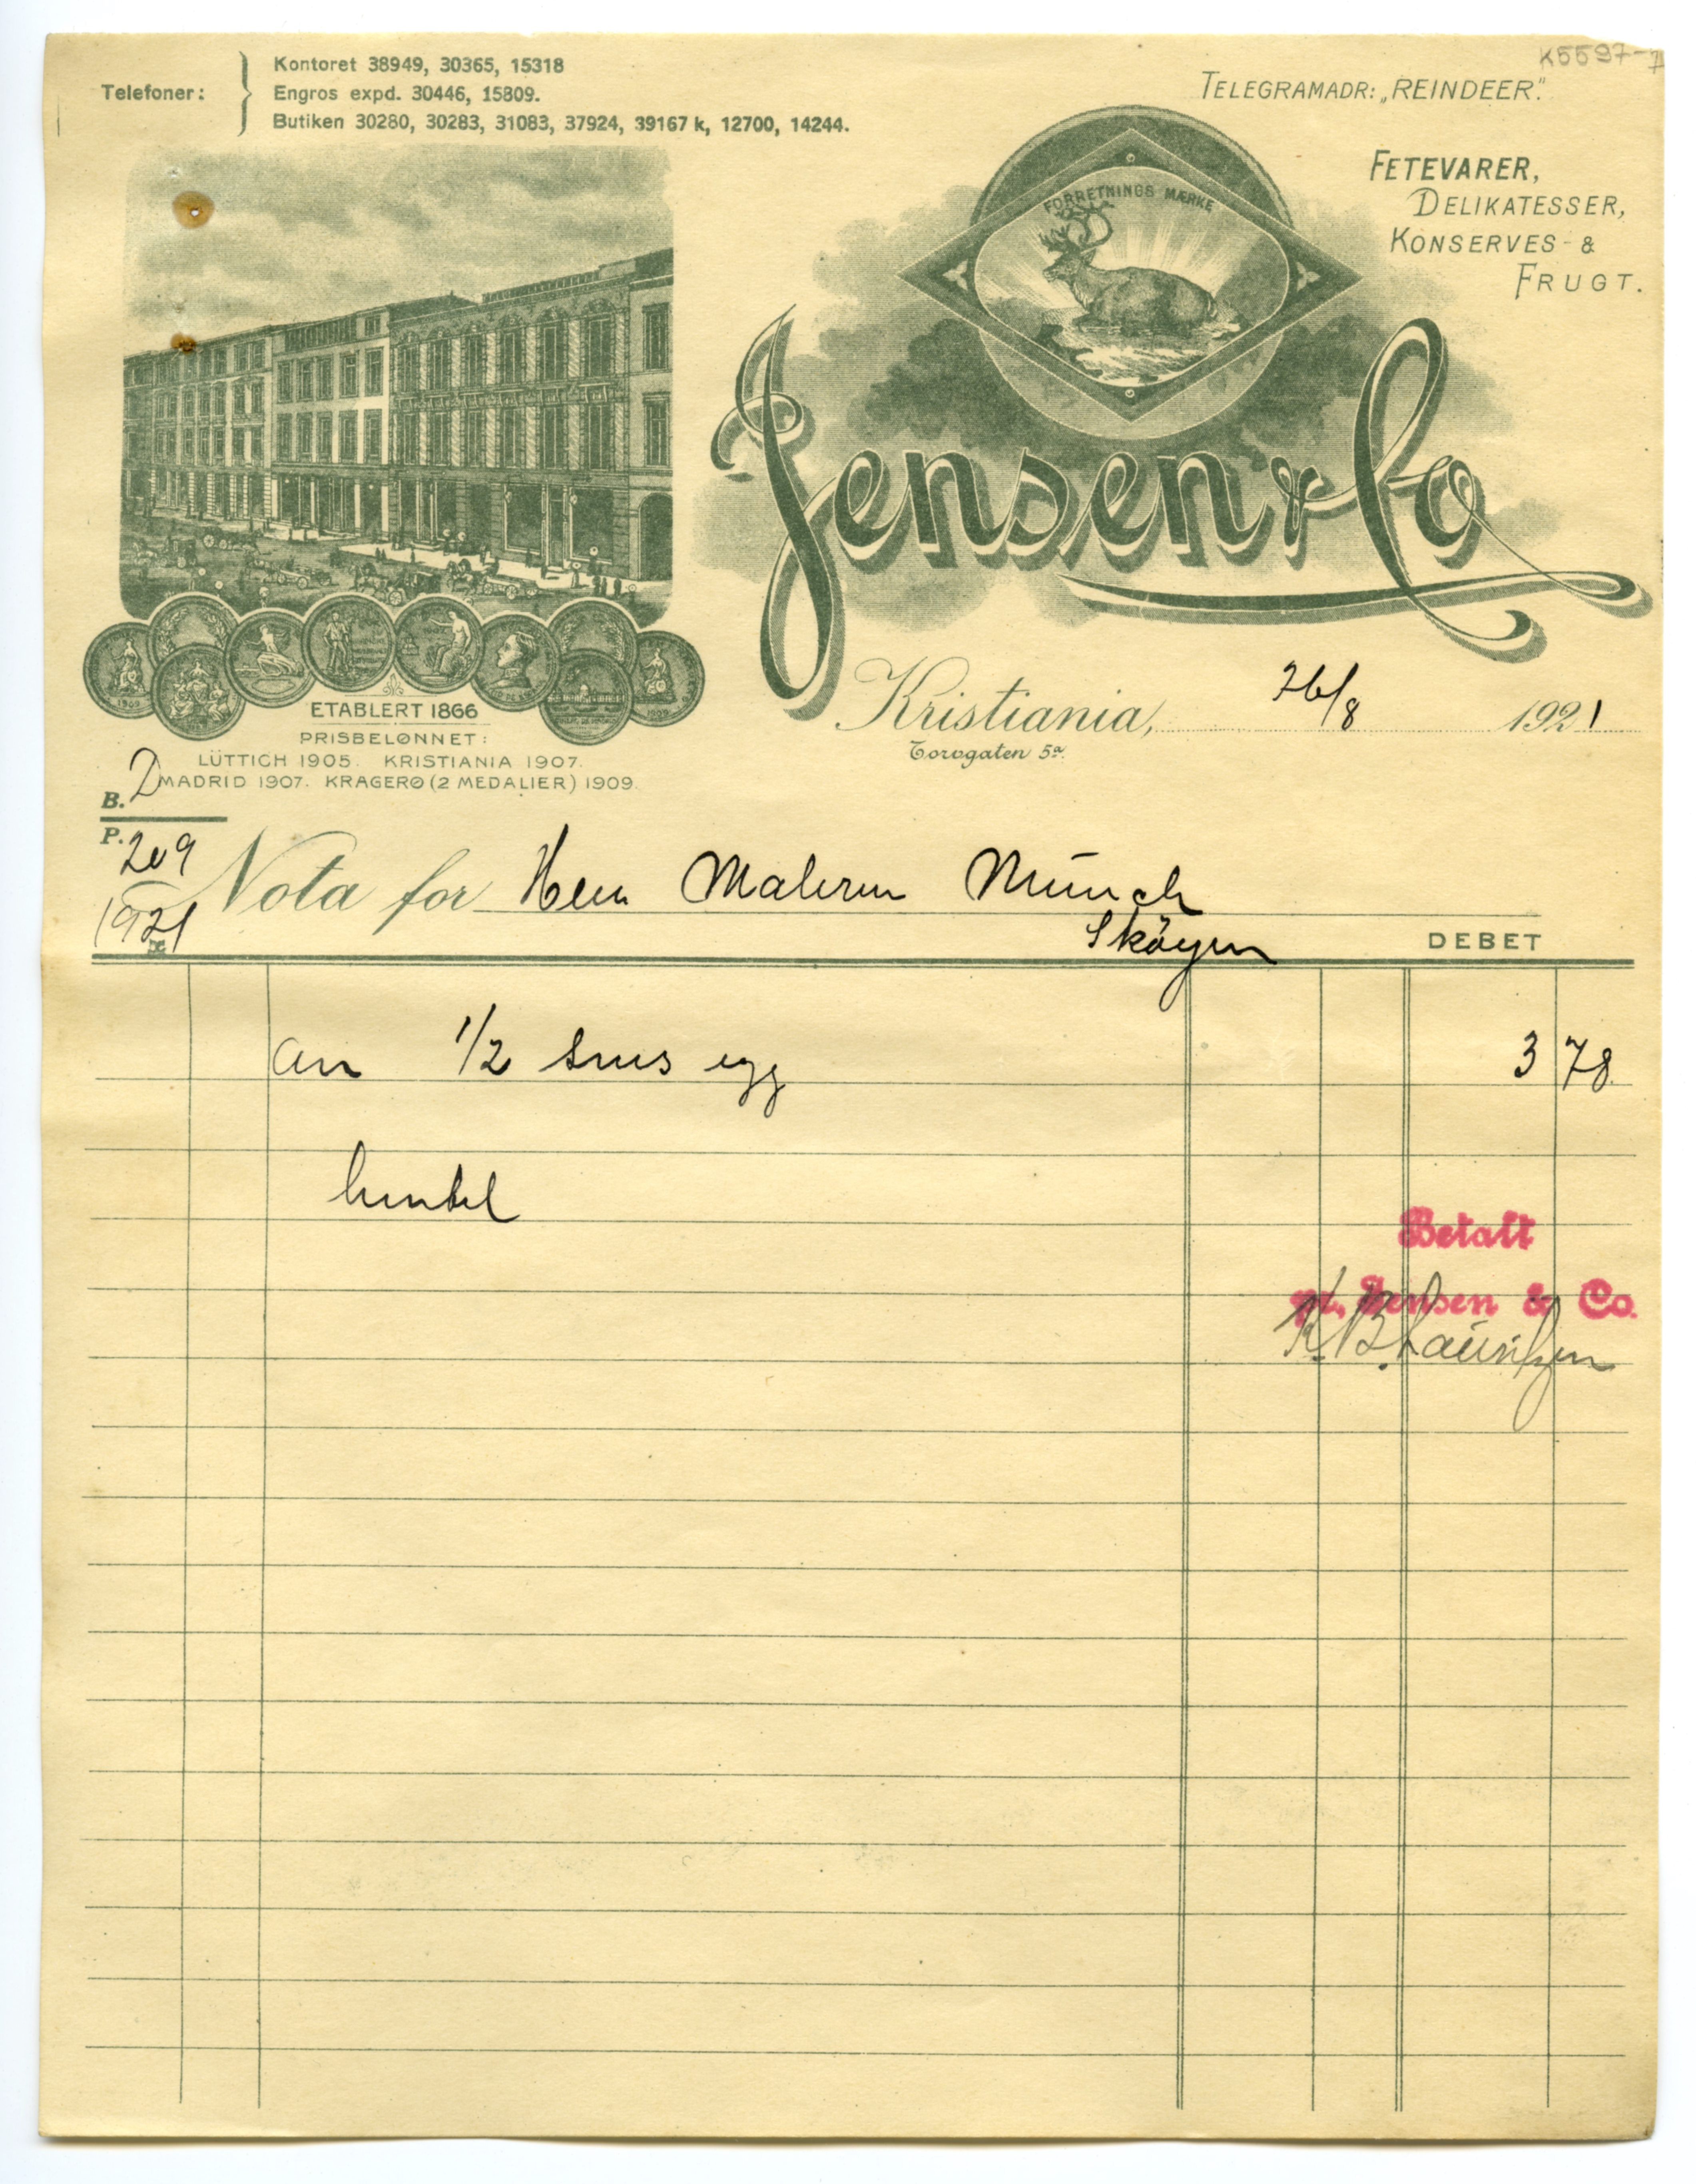 K5597-7
Telefoner:
Kontoret 38949, 30365, 15318
Engros expd. 30446, 15809.
Butiken 30280, 30283, 31083, 37924, 39167 k, 12700, 14244.
TELEGRAMADR: „REINDEER."
FETEVARER,
DELIKATESSER,
KONSERVES- &
FRUGT.
FORRETNINGS MÆRKE
Jensen & Co
ETABLERT 1866
PRISBELØNNET:
LÜTTICH 1905. KRISTIANIA 1907.
MADRID 1907. KRAGERØ (2 MEDALIER) 1909.
Kristiania, 26/8 1921
Torvgaten 5a.
B. 2
P. 209
1921
Nota for Herr Maleren Münch
Sköyen
DEBET
an 1/2 snes egg 3 78
hentet
Betalt
Jensen & Co.